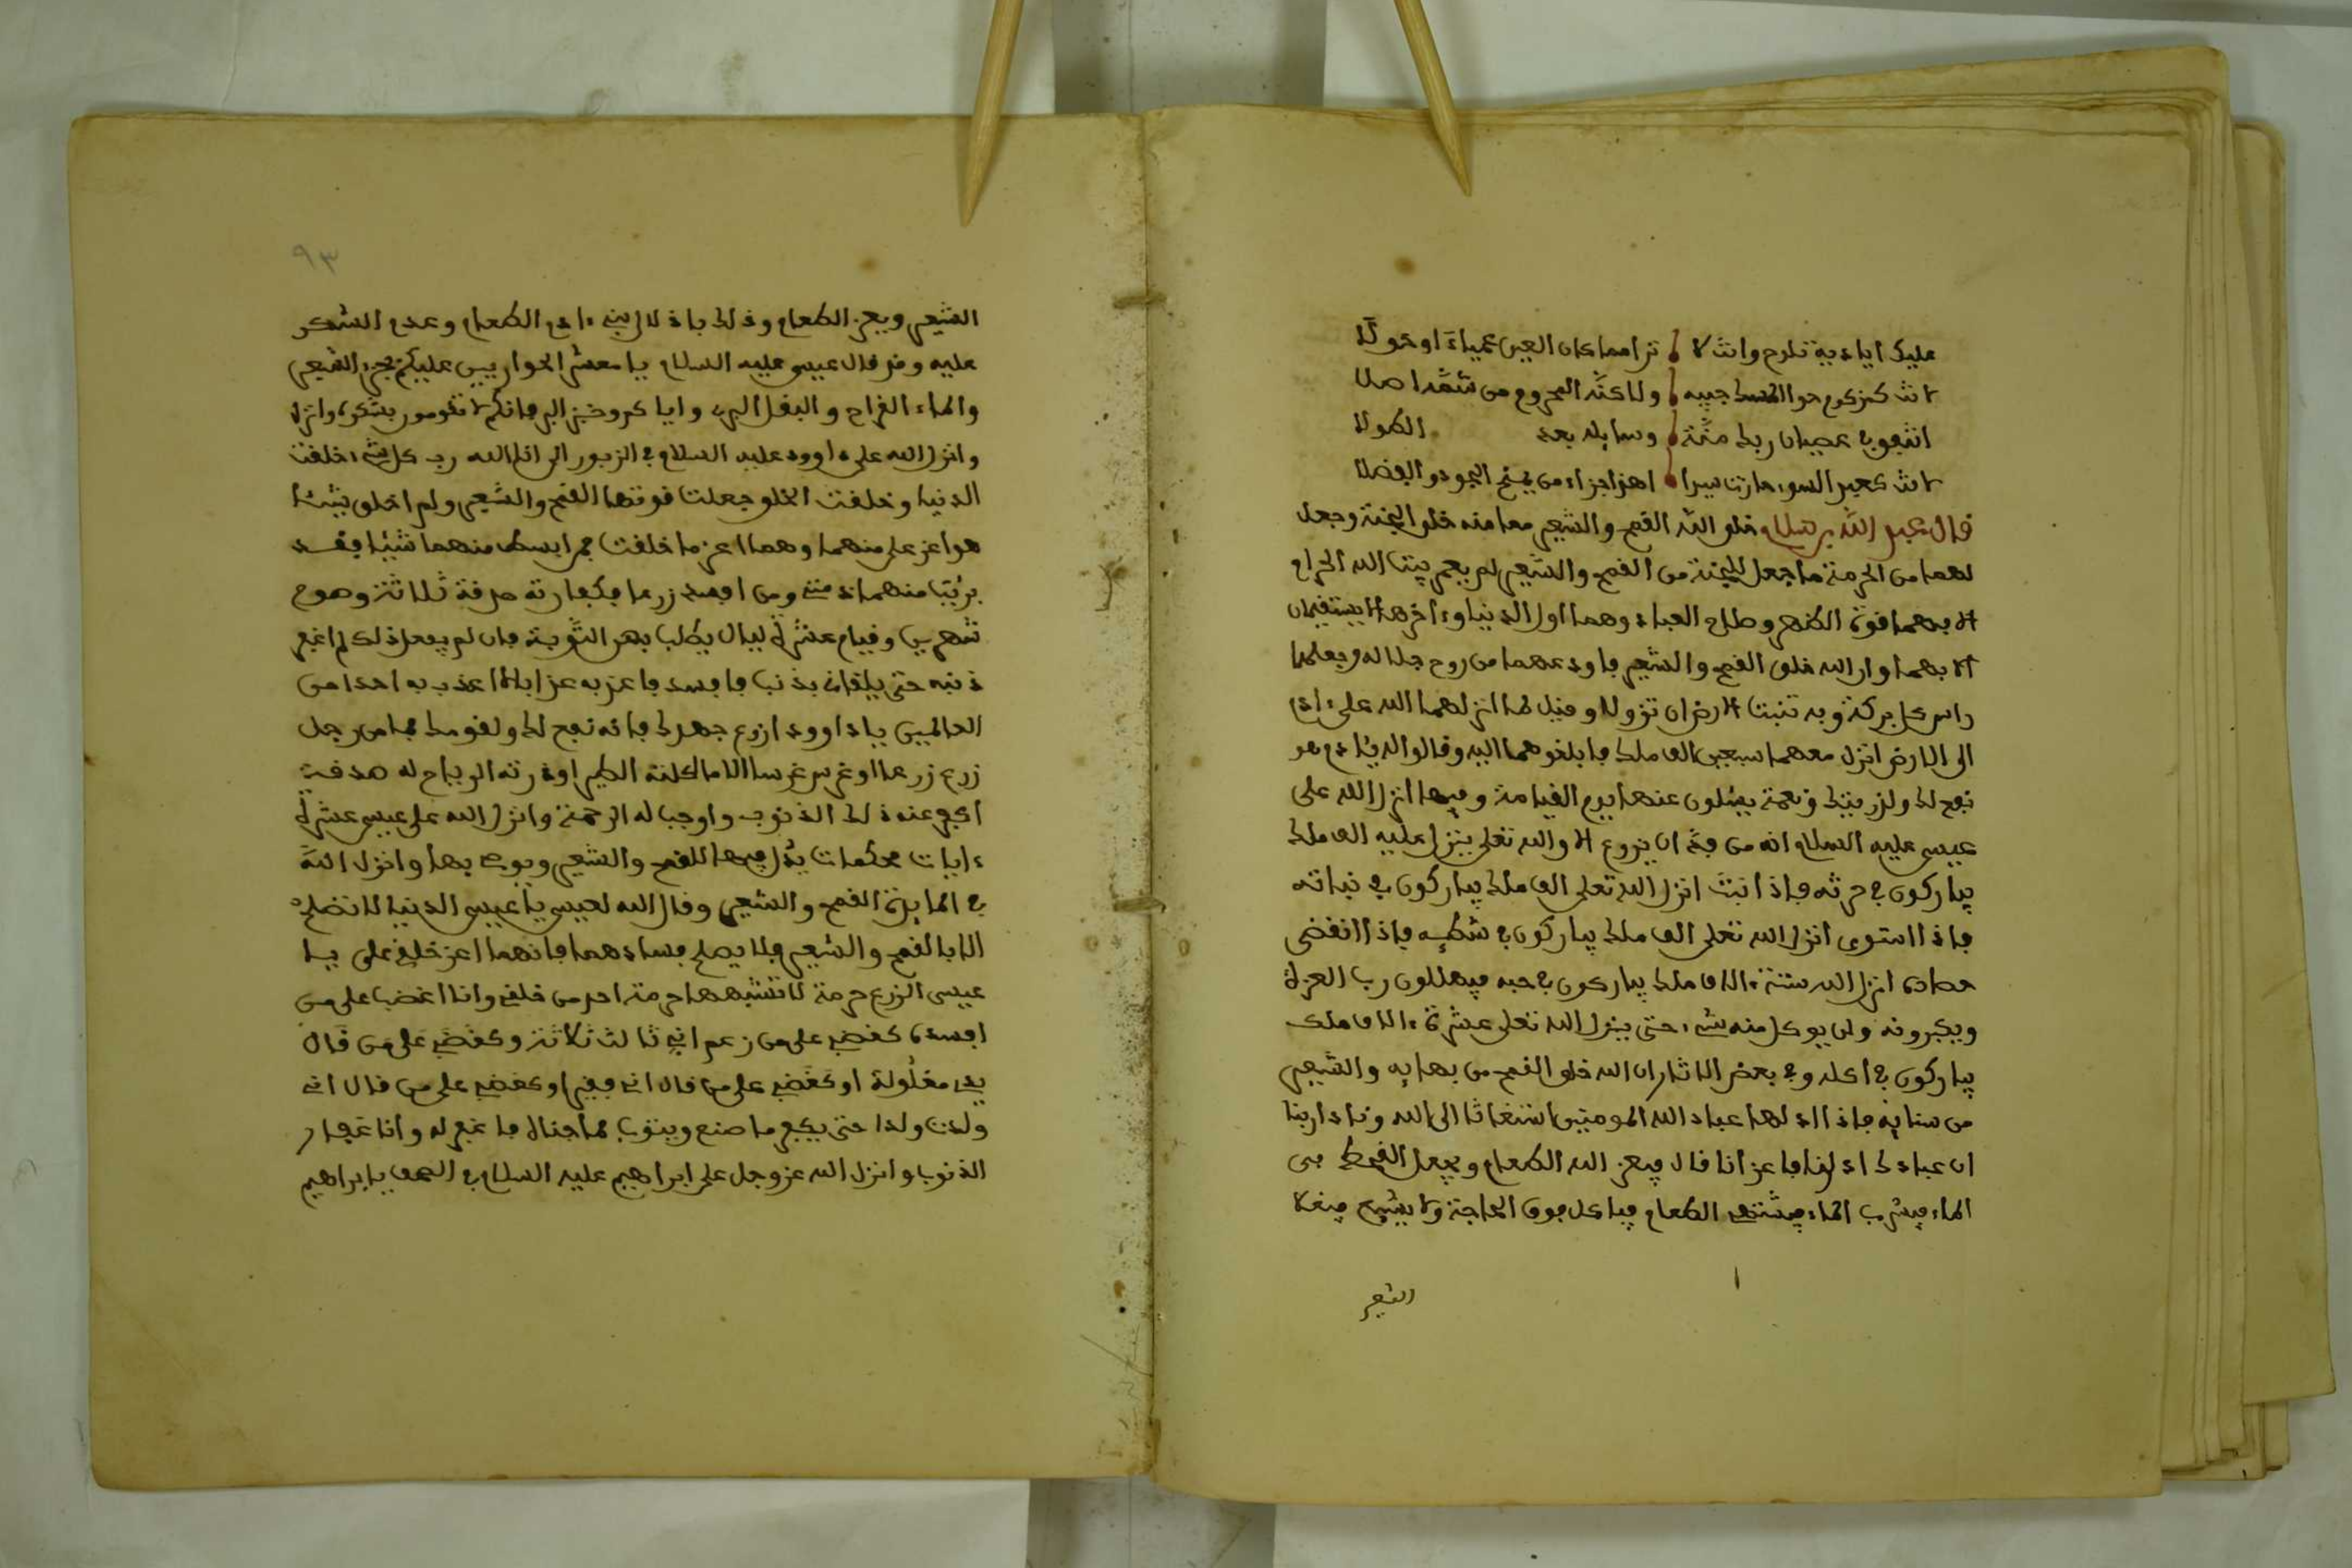 عليك اياد ية تلوح وانت لا تراها كان العين عمياء او حولا
وسايله بعد الطولا
قال عبد الله بن سلام خلق الله القمح والشعير معا منه خلق الجنة وجعل
لهما من الحرمة ما جعل للجنة من القمح والشعير لم يعمر بيت الله الحرام
الا بهما قوة الظهر وصلاح العباد وهما اول الدنيا وءاخرها لا يستقيمان
الا بهما وان الله خلق القمح والشعير فاودعهما من روح جلاله وجعلهما
راس كل بركة وبه تنبت الارض ان تزولا وقيل لما انزلهما الله على ءادم
الى الارض انزل معهما سبعين الف ملك فابلغوهما اليه وقالوا له يئادم هو
نفع لك ولذريتك ونعمة يسئلون عنها يوم القيامة وفيها انزل الله على
عيسى عليه السلام انه من ان يزرع الا والله تعلى ينزل عليه الف ملك
يباركون في حرثه فاذا انبت انزل الله تعلى الف ملك يباركون في نباته
فاذا استوى انزل الله تعلى الف ملك يباركون في شطيه فاذا انقضى
حصاده انزل الله ستة ءالاف ملك يباركون في حبه فيهللون رب العزة
ويكبرونه ولن يوكل منه شيء حتى ينزل الله تعلى عشرة ءالاف ملك
يباركون في اكله وفي بعض الاثار ان الله خلق القمح من بهايه والشعير
من سنايه فاذا اذلها عباد الله المومنين استغاثا الى الله ونادا ربنا
ان عبادك اذلونا فاعزنا قال فيعز الله الطعام ويجعل القحط في
الماء فيشرب الماء فيشتهي الطعام فياكل فوق الحاجة ولا يشبع فيغلا
الشعير
٩٣
الشعير ويعز الطعام وذلك باذلال بني ءادم الطعام وعدم الشكر
عليه وقد قال عيسى عليه السلام يا معشر الحواريين عليكم بخبز الشعير
والماء القراح والبقل البري واياكم وخبز البر فانكم لا تقومون بشكره وانزل
وانزل الله على داوود عليه السلام في الزبور اني انا الله رب كل شيء خلقت
الدنيا وخلقت الخلق جعلت قوتها القمح والشعير ولم اخلق شيئا
هو اعز علي منهما وهما اعز ما خلقت فمن ابسط منهما شيئا فقد
برئت منهما ذمتي ومن افسد زرعا فكفارته صدقة ثلاثة وصوم
شهرين وقيام عشرة ليال يطلب بهن التوبة فان لم يفعل ذلك لم اغفر
ذنبه حتى يلقاني بذنب ما افسد فاعذبه عذابا لا اعذب به احدا من
العالمين ياداوود ازرع جهدك فانه نفع لك ولقومك فما من رجل
زرع زرعا او غرس غرسا الا ما اكلته الطير او ذرته الرياح له صدقت
اكفر عنه ذلك الذنوب واوجب له الرحمة وانزل الله على عيسى عشرة
ءايات محكمات يذكر فيها القمح والشعير ويوصي بها وانزل الله
في المايدة القمح والشعير وقال الله لعيسى ياعيسى الدنيا لا تصلح
الا بالقمح والشعير فلا يصلح فسادهما فانهما اعز خلقي علي يا
عيسى الزرع حرمة لا تشبهها حرمة احد من خلقي وانا اغضب على من
افسده كغضبي على من زعم اني ثالث ثلاثة وكغضبي على من قال
يدي مغلولة او كغضبي على من قال اني فقير او كغضبي على من قال اني
ولدت ولدا حتى يكفر ما صنع ويتوب مما جناه فاغفر له وانا غفار
الذنوب وانزل الله عز وجل على ابراهيم عليه السلام في الصحف يابراهيم